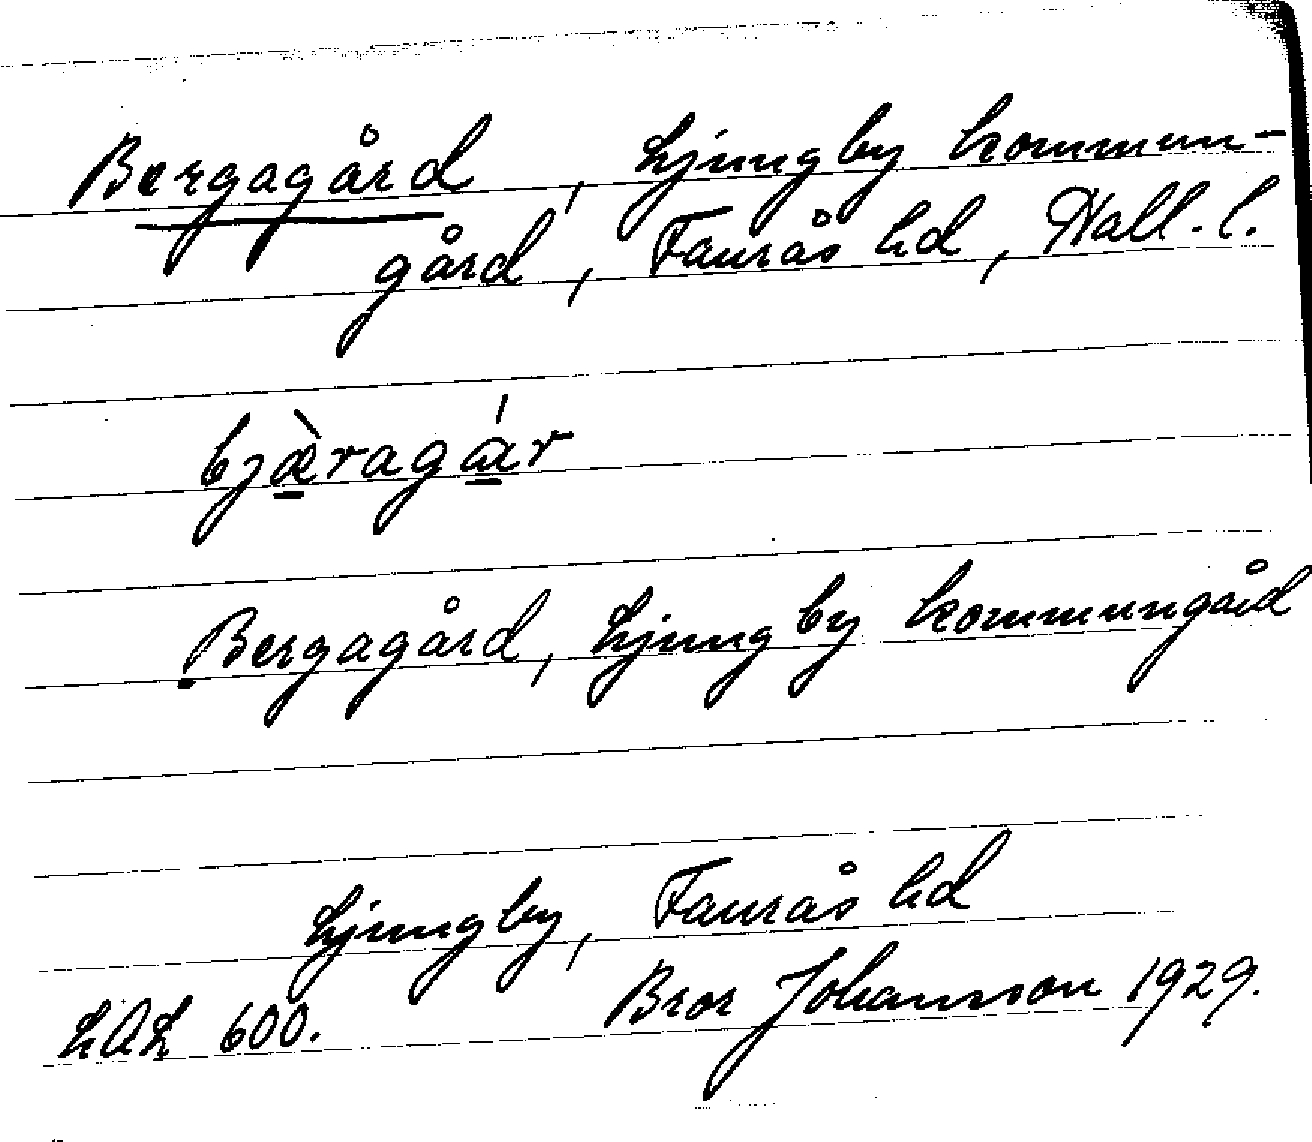 Bergagård, Ljungby kommun-
gård, Faurås hd, Hall. l.
bjæ̀ragár
Bergagård, Ljungby kommungård
Ljungby, Faurås hd
LAL 600. Bror Johansson 1929.